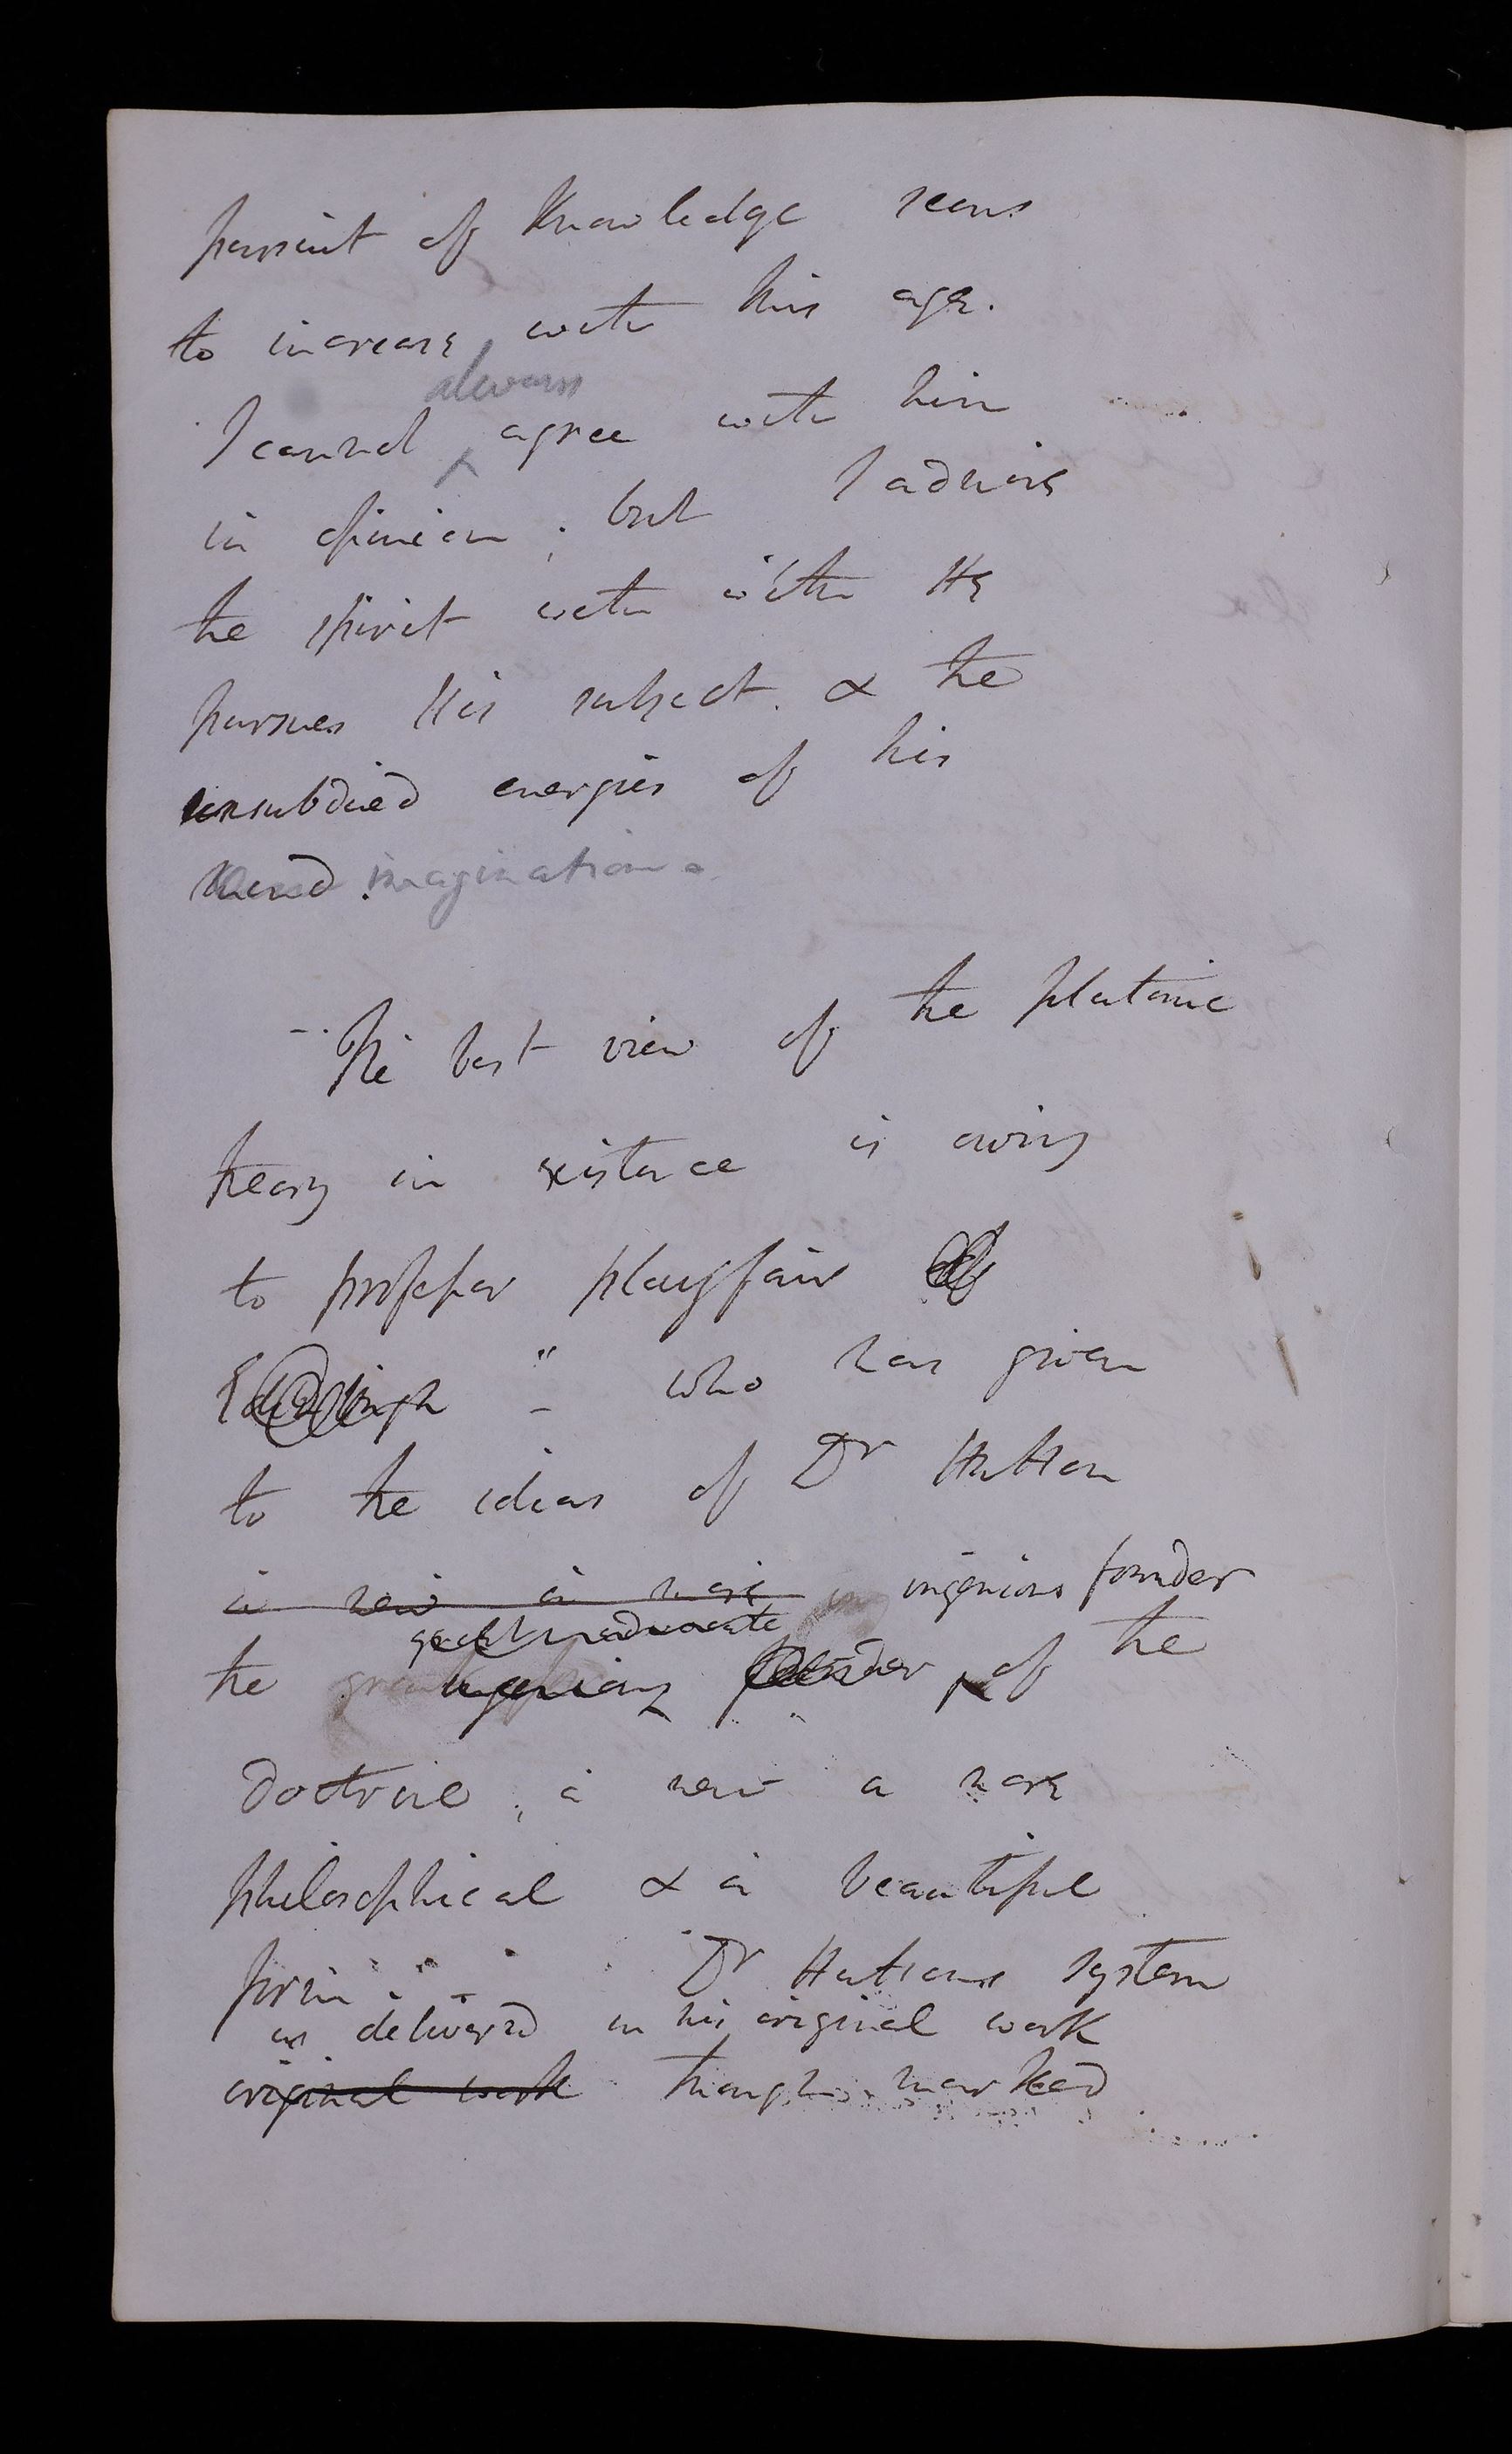 pursuit of Knowledge seems
to increase with his age.
always
I cannot agree with him
in opinion; but I admire
the spirit with with He
pursues His subject. & the
unsubdued energies of his
mind. imagination -
- The best view of the plutonic
theory in existence is owing
to professor playfair of
Edinburgh - who has given
to the ideas of Dr Hutton
a new a more ingenious founder
great advocate
the ingenious founder of the
doctrine, a new a more
philosophical & a beautiful
form. Dr Huttons system
as delivered in his original work
original work though marked